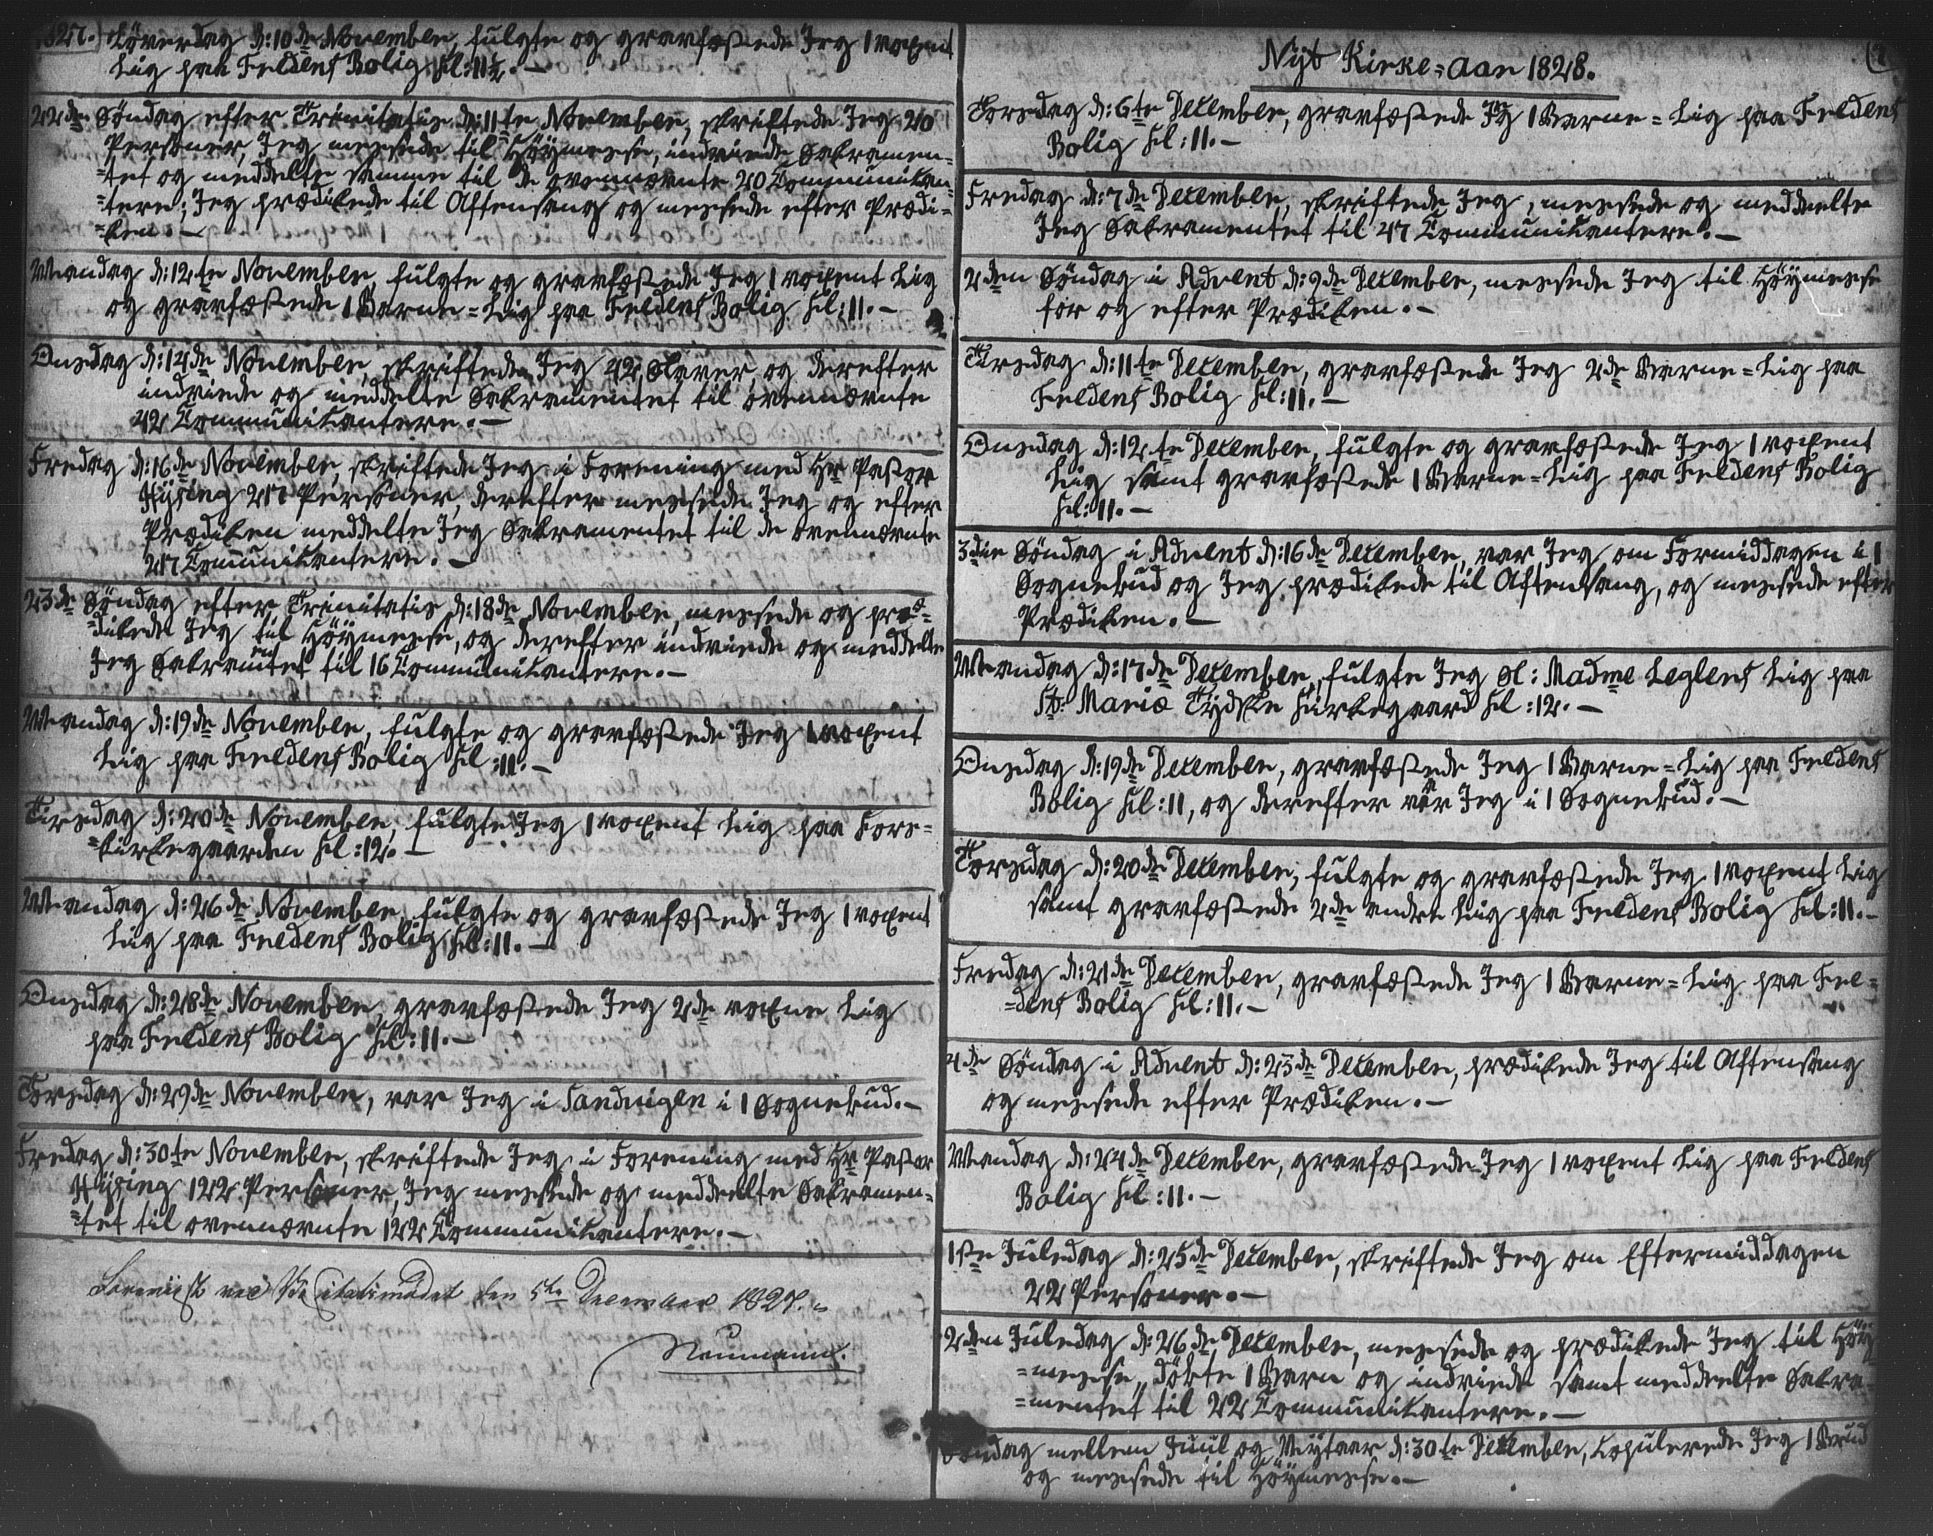 1827. Löverdag d: 10de November, fulgte og gravfæstede Jeg 1 voxent
Lig paa Fredens Bolig Kl: 11½. –
22de Söndag efter Trinitatis d: 11te November, skriftede Jeg 20
Personer, Jeg messede til Höymesse, indviede Sakramen-
=tet og meddelte samme til de ovennævnte 20 Communikan-
=tere; Jeg prædikede til Aftensang og messede efter Prædi-
=ken. –
Mandag d: 12te November, fulgte og gravfæstede Jeg 1 voxent Lig
og gravfæstede 1 Barne=Lig paa Fredens Bolig Kl: 11. –
Onsdag d: 14de November, skriftede Jeg 42 Slaver, og derefter
indviede og meddelte Sakramentet til ovennævnte
42 Communikantere. –
Fredag d: 16de November, skriftede Jeg i Forening med Hr Pastor
Hysing 217 Personer, derefter messede Jeg og efter
Prædiken meddelte Jeg Sakramentet til de ovennævnte
217 Communikantere. –
23de Söndag efter Trinitatis d: 18de November, messede og præ-
=dikede Jeg til Höymesse, og derefter indviede og meddelte
Jeg Sakramentet til 16 Communikantere. –
Mandag d: 19de November, fulgte og gravfæstede Jeg 1 voxent
Lig paa Fredens Bolig Kl: 11. –
Tirsdag d: 20de November, fulgte Jeg 1 voxent Lig paa Kors=
=kirkegaarden Kl: 12. –
Mandag d: 26de November, fulgte og gravfæstede Jeg 1 voxent
Lig paa Fredens Bolig Kl: 11. –
Onsdag d: 28de November, gravfæstede Jeg 2de voxne Lig
paa Fredens Bolig Kl: 11. –
Torsdag d: 29de November, var Jeg i Sandvigen i 1 Sognebud. –
Fredag d: 30te November, skriftede Jeg i Forening med Hr Pastor
Hysing 122 Personer, Jeg messede og meddeelte Sakramen=
=tet til ovennævnte 122 Communikantere. –
Foreviist ved Visitatsmödet den 5te December 1827.
Neumann.
Nyt Kirke=Aar 1828.
Torsdag d: 6te December, gravfæstede Jeg 1 Barne=Lig paa Fredens
Bolig Kl: 11. –
Fredag d: 7de December, skriftede Jeg, messede og meddeelte
Jeg Sakramentet til 47 Communikantere. –
2den Söndag i Advent d: 9de December, messede Jeg til Höymesse
for og efter Prædiken. –
Tirsdag d: 11te December, gravfæstede Jeg 2de Barne=Lig paa
Fredens Bolig Kl: 11. –
Onsdag d: 12te December, fulgte og gravfæstede Jeg 1 voxent
Lig samt gravfæstede 1 Barne=Lig paa Fredens Bolig
Kl: 11. –
3die Söndag i Advent d: 16de December, var Jeg om Formiddagen i 1
Sognebud og Jeg prædikede til Aftensang, og messede efter
Prædiken. –
Mandag d: 17de December, fulgte Jeg Sl: Madme Leglers Lig paa
St. Mariæ Tydske Kirkegaard Kl: 12. –
Onsdag d: 19de December, gravfæstede Jeg 1 Barne=Lig paa Fredens
Bolig Kl: 11, og derefter var Jeg i 1 Sognebud. –
Torsdag d: 20de December, fulgte og gravfæstede Jeg 1 voxent Lig
samt gravfæstede 2de andre Lig paa Fredens Bolig Kl: 11. –
Fredag d: 21de December, gravfæstede Jeg 1 Barne=Lig paa Fre=
=dens Bolig Kl: 11. –
4de Söndag i Advent d: 23de December, prædikede Jeg til Aftensang
og messede efter Prædiken. –
Mandag d: 24de December, gravfæstede Jeg 1 voxent Lig paa Fredens
Bolig Kl: 11. –
1ste Juledag d: 25de December, skriftede Jeg om Eftermiddagen
22 Personer. –
2den Juledag d: 26de December, messede og prædikede Jeg til Höy
=messe, döbte 1 Barn og indviede samt meddeelte Sakra=
=mentet til 22 Communikantere. –
Söndag mellem Juul og Nytaar d: 30te December, Copulerede Jeg 1 Brud
og messede til Höymesse. –